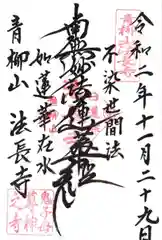 令和二年十一月二十九日
不染世間法
南無妙法蓮華經
如蓮華在水
青柳山 法長寺